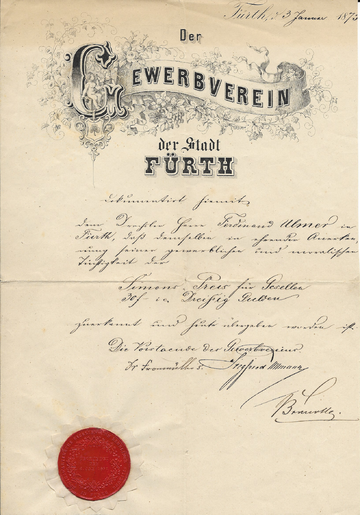 Fürth, d 3 Januar 1873
Der
GEWERBVEREIN
der Stadt
FÜRTH
dokumentirt hiemit
dem Drechsler Herr Ferdinand Ulmer in
Fürth, daß demselben in ehrender Anerken-
nung seiner gewerblichen und moralischen
Tüchtigkeit der
Simons Preis für Gesellen
30 f. i.e. Dreißig Gulden
zuerkannt und heute übergeben worden ist.
Die Vorstaende des Gewerbvereins
Dr Fronmüller